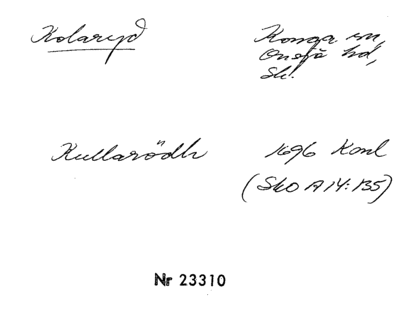 Kolaryd
Konga sn,
Onsjö hd,
Sk.
Kullarödh
1696 Konl
(SkO A 14:135)
Nr 23310